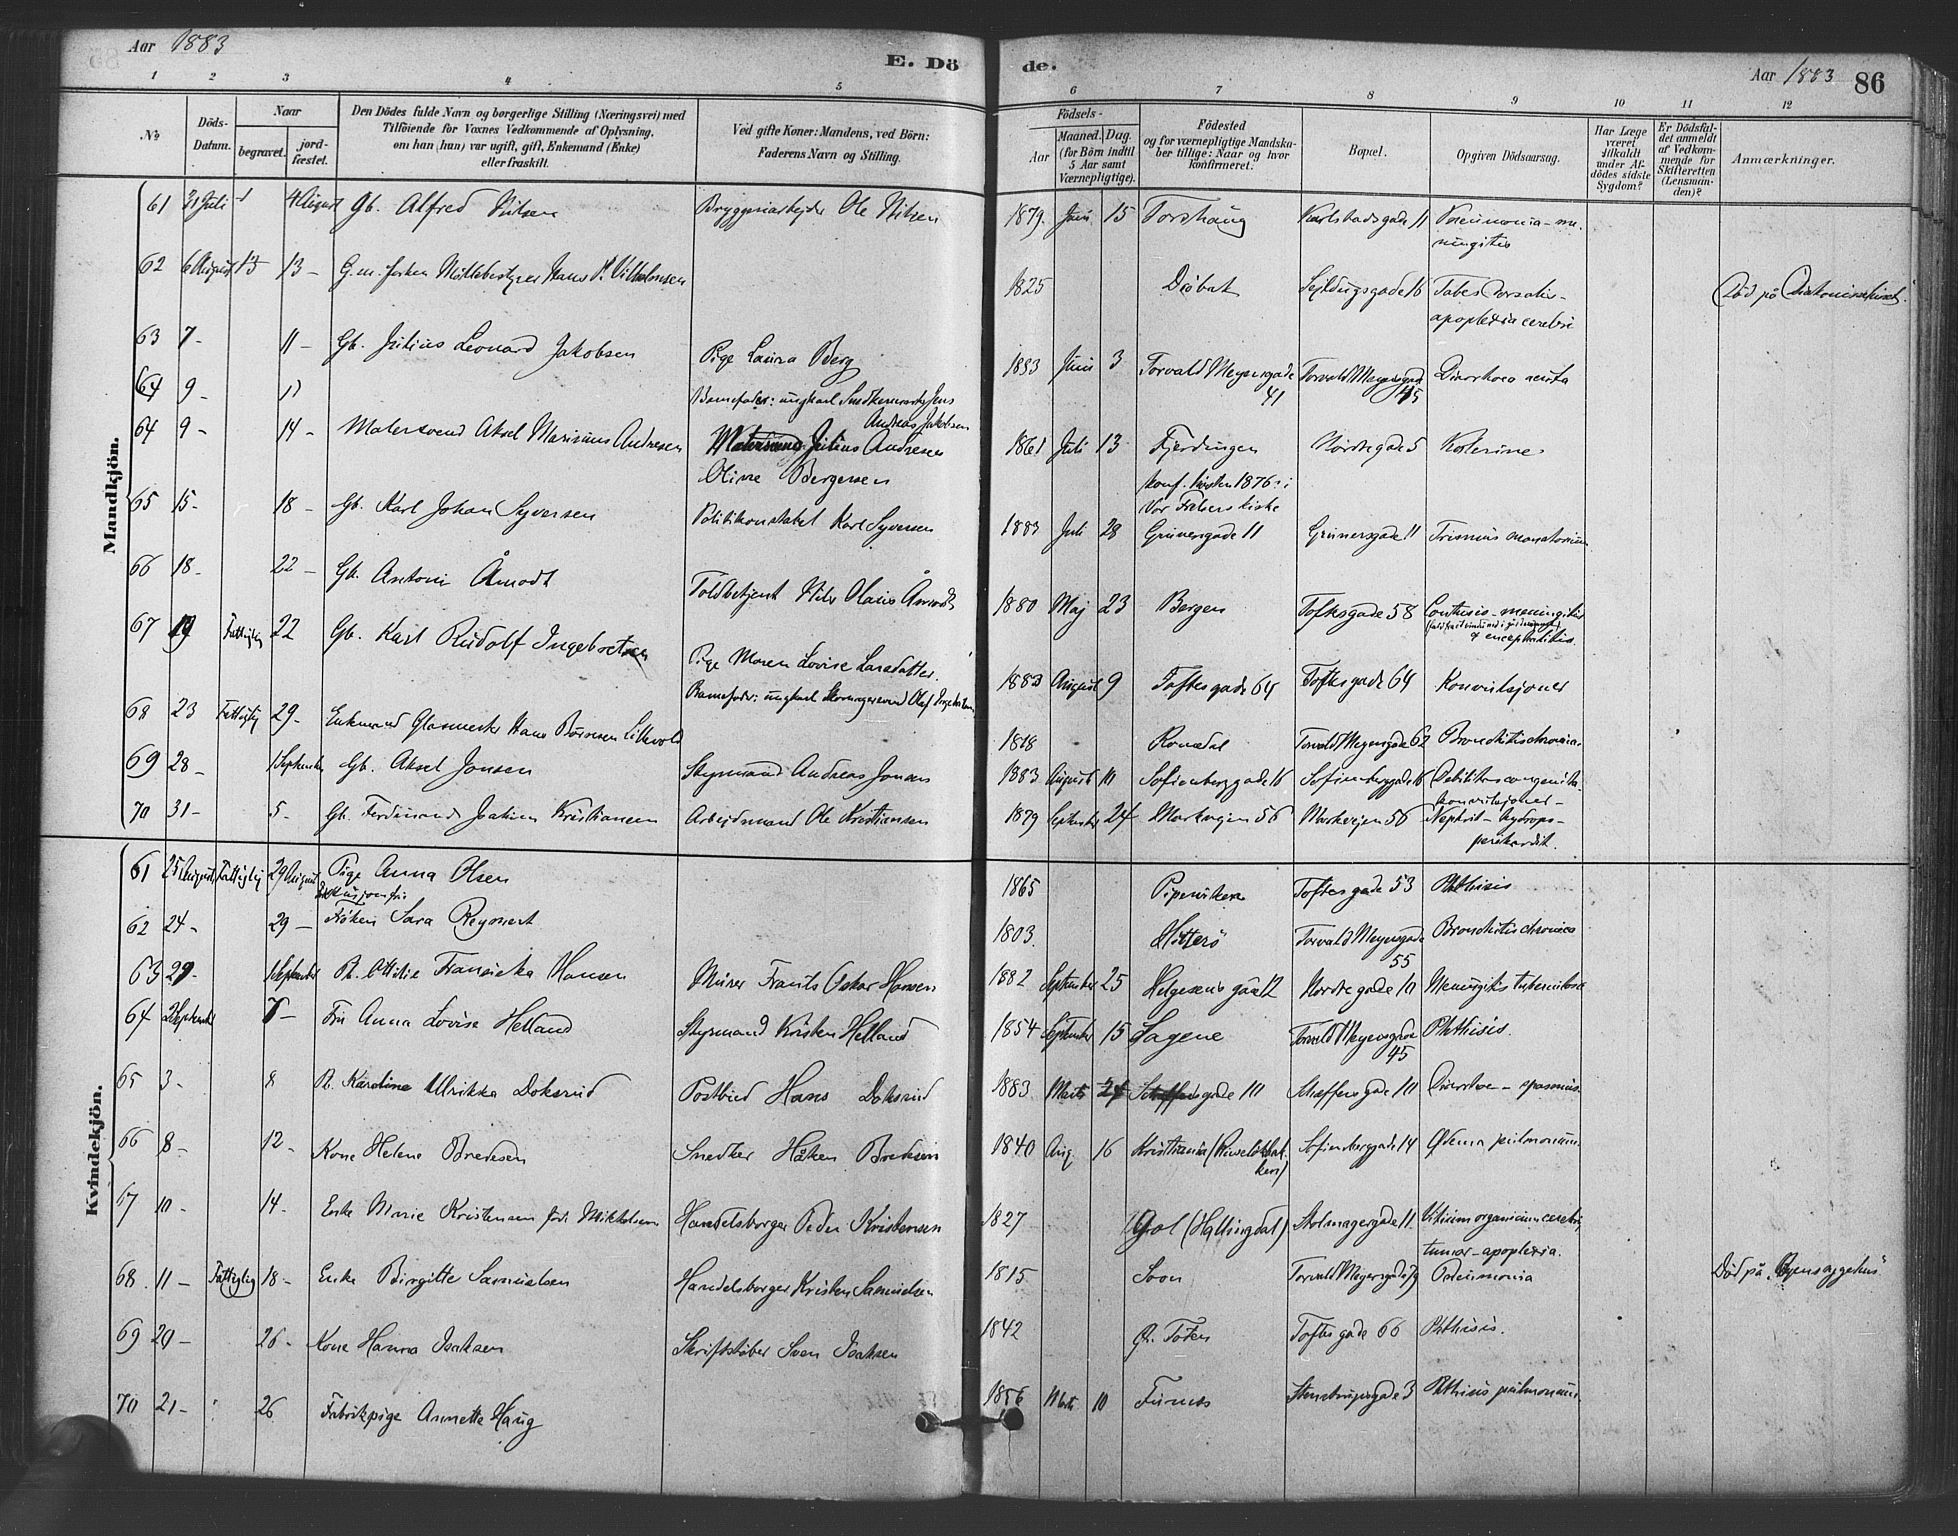 Aar 1883
E. Dö de.
Aar 1883 86
1 2 3 4 5 6 7 8 9 10 11 12
No
Döds-Datum.
Naar
begravet.
jord-fæstet.
Den Dödes fulde Navn og borgerlige Stilling (Næringsvei) med
Tilföiende for Voxnes Vedkommende af Oplysning,
om han (hun) var ugift, gift, Enkemand (Enke)
eller fraskilt.
Ved gifte Koner: Mandens, ved Börn:
Faderens Navn og Stilling.
Födsels-
Aar
Maaned. Dag.
(for Börn indtil
5 Aar samt
Værnepligtige).
Födested
og for værnepligtige Mandska-
ber tillige: Naar og hvor
konfirmeret.
Bopæl.
Opgiven Dödsaarsag.
Har Læge
været
tilkaldt
under Af-
dödes sidste
Sygdom?
Er Dödsfal-
det anmeldt
af Vedkom-
mende for
Skifteretten
(Lensman-
den)?
Anmærkninger.
Mandkjön.
61 31 Juli 4 August Gb. Alfred Nilsen Bryggeriarbejder Ole Nilsen 1879. Juni 15 Torshaug Karlstadsgade 11 Pneumonia – me-
ningitis
62 6 August 13 13 – G.m. forhen Möllebestyrer Hans P. Vilhelmsen 1825 Dröbak Sejldugsgade 16 Tabes dorsalis –
apoplexia cerebri Död på Diakonissehuset.
63 7 – 11 – Gb. Julius Leonard Jakobsen Pige Laura Berg 1883 Juni 3 Torvald Meyersgade 41 Torvald Meyersgade 45 Diarrhoea acuta
64 9 – 17 Barnefader: ungkarl Snedkersvend Jens
Andreas Jakobsen
64 9 – 14 – Malersvend Aksel Marinius Andresen Julius Andresen
Oline Bergersen 1861 Juli 13 Fjerdingen
konf. hösten 1876 i
Vor Frelsers kirke Nordregade 5 Kolerine
65 15 – 18 – Gb. Karl Johan Syversen Politikonstabel Karl Syversen 1883 Juli 28 Grünersgade 11 Grünersgade 11 Trismus
66 18 – 22 – Gb. Antoni Åmodt Toldbetjent Nils Olaus Åmodt 1880 Maj 23 Bergen Toftesgade 58 Contusio – meningitis
& encephalitis.
67 19 Fattiglig 22 Gb. Karl Rudolf Ingebretsen Pige Maren Lovise Larsdatter.
Barnefader: ungkarl Skomagersvend Olaf Ingebretsen 1883 August 9 Toftesgade 64 Toftesgade 64 Konvulsjoner
68 23 Fattiglig 29 – Enkemand Glasmester Hans Lillevold 1818 Romedal Torvald Meyersgade 62 Bronchitis chronica.
69 28 – 1 September Gb. Aksel Jonsen Styrmand Andreas Jonsen 1883 August 11 Sofienberggade 16 Sofienberggade 16 Debilitas congenita
konvulsjoner –
70 31 – 5 – Gb. Ferdinand Joakim Kristiansen Arbejdsmand Ole Kristiansen 1879 September 24 Markvejen 56 Markvejen 56 Nephrit – hydrops –
perikardit.
Kvindekjön.
61 25 August Fattiglig 29 August Pige Anna Olsen 1865 Piperviken Toftesgade 53 Phthisis
62 24 – 29 – Fröken Sara Reymert 1803. Hitterö Torvald Meyersgade
55 Bronchitis chronica
63 29 – 1 September Pb. Ottilie Franciska Hansen Murer Frants Oskar Hansen 1882 September 25 Helgesens gade 12 Nordregade 11 Meningitis tuberculosa
64 2 September 7 – Fru Anna Lovise Helland Styrmand Kristen Helland 1854 September 15 Sagene Torvald Meyersgade
45 Phthisis.
65 3 – 8 Pb. Karoline Ulrikka Doksrud Postbud Hans Doksrud 1883 Marts 24 Schæffersgade 111 Diarrhoe – spasmus.
66 8 – 12 – Kone Helene Bredesen Snedker Håken Bredesen 1840 Aug. 16 Kristiania Sofienberggade 14 Ødema pulmonum.
67 10 – 14 – Enke Marie Kristensen föd Mikkelsen Handelsborger Peder Kristensen 1827 Gol (Hallingdal) Skolmagergade 11. Vitium organicum cerebri,
tumor – apoplexia.
68 11 – Fattiglig 18 – Enke Birgitte Samuelsen Handelsborger Kristen Samuelsen 1815 Svon Torvald Meyersgade 79 Pneumonia Död på „Byens sygehus”
69 20 – 26 – Kone Hanna Isaksen Skriftstöber Sven Isaksen 1842 Ö. Toten Toftesgade 66 Phthisis.
70 21 – 26 Fabrikpige Annette Haug 1856 Marts 10 Furnes Stenstrupsgade 3 Phthisis pulmonum.